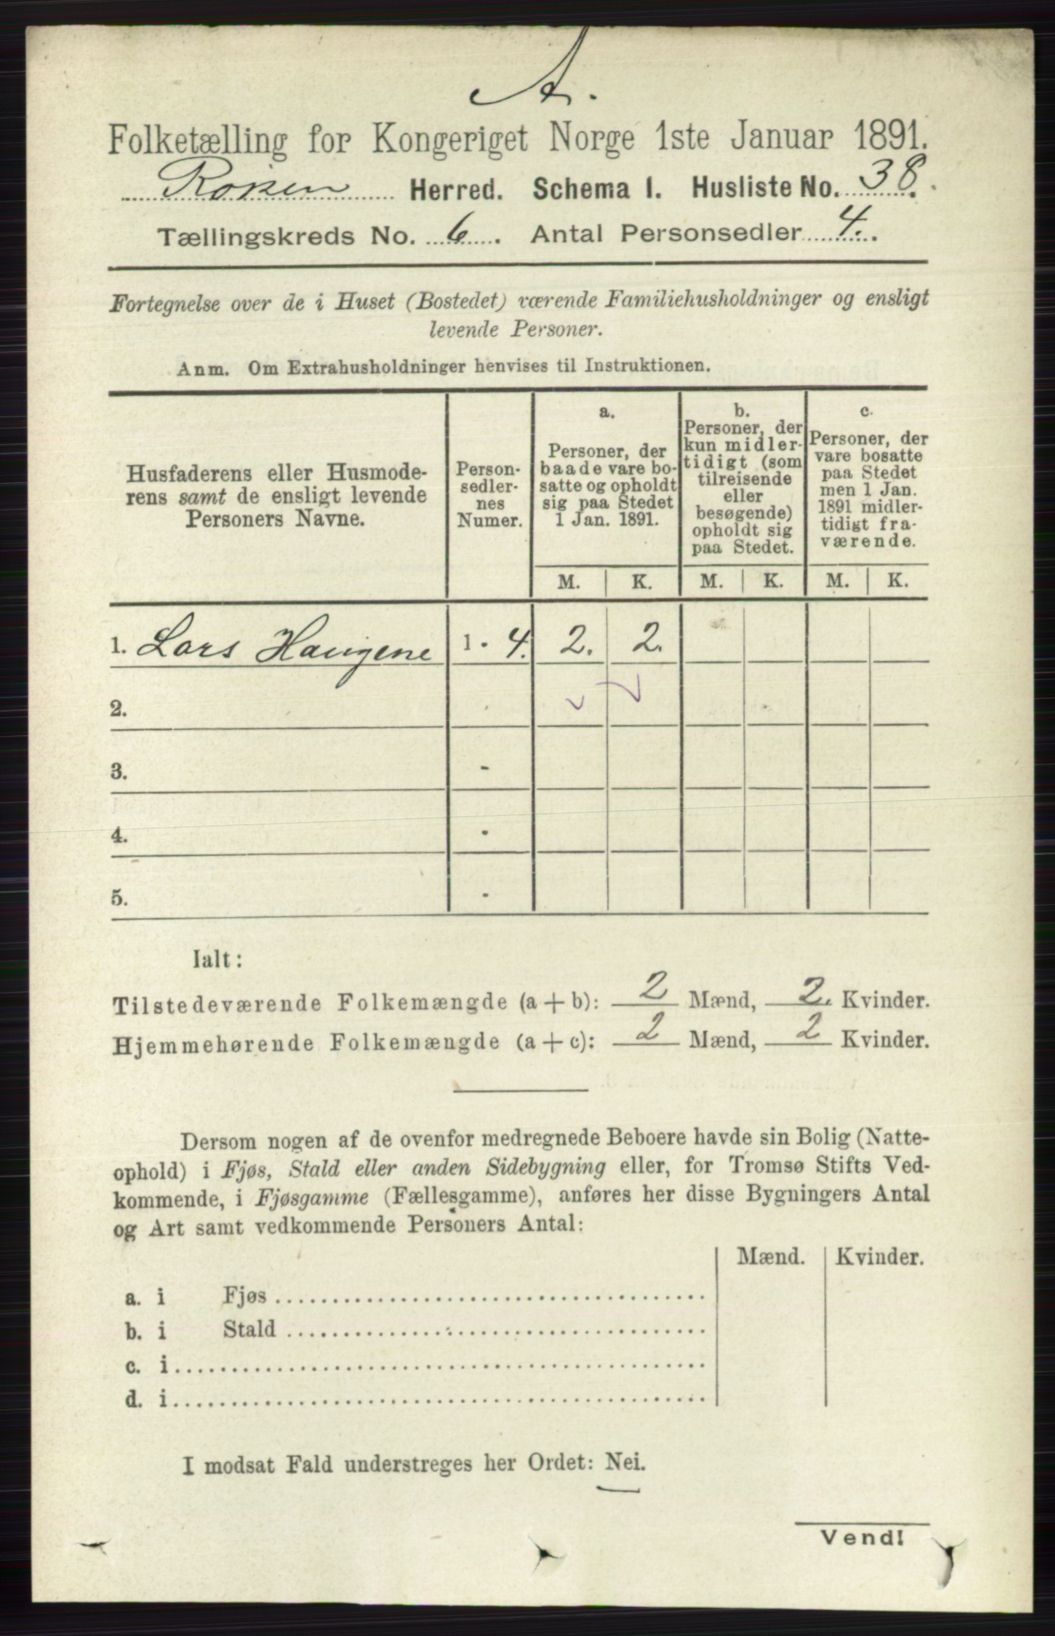 A.
Folketælling for Kongeriget Norge 1ste Januar 1891.
Röken Herred. Schema I. Husliste No. 38.
Tællingskreds No. 6. Antal Personsedler 4.
Fortegnelse over de i Huset (Bostedet) værende Familiehusholdninger og ensligt
levende Personer.
Anm. Om Extrahusholdninger henvises til Instruktionen.
Husfaderens eller Husmode-
rens samt de ensligt levende
Personers Navne.
Person-
sedler-
nes
Numer.
a.
Personer, der
baade vare bo-
satte og opholdt
sig paa Stedet
1 Jan. 1891.
b.
Personer, der
kun midler-
tidigt (som
tilreisende
eller
besøgende)
opholdt sig
paa Stedet.
c.
Personer, der
vare bosatte
paa Stedet
men 1 Jan.
1891 midler-
tidigt fra-
værende.
M. K. M. K. M. K.
1. Lars Haugene 1 - 4. 2. 2.
2.
3. -
4. -
5. -
Ialt:
Tilstedeværende Folkemængde (a + b): 2 Mænd, 2. Kvinder.
Hjemmehørende Folkemængde (a + c): 2 Mænd, 2 Kvinder.
Dersom nogen af de ovenfor medregnede Beboere havde sin Bolig (Natte-
ophold) i Fjøs, Stald eller anden Sidebygning eller, for Tromsø Stifts Ved-
kommende, i Fjøsgamme (Fællesgamme), anføres her disse Bygningers Antal
og Art samt vedkommende Personers Antal:
Mænd. Kvinder.
a. i Fjøs
b. i Stald
c. i
d. i
I modsat Fald understreges her Ordet: Nei.
Vend!